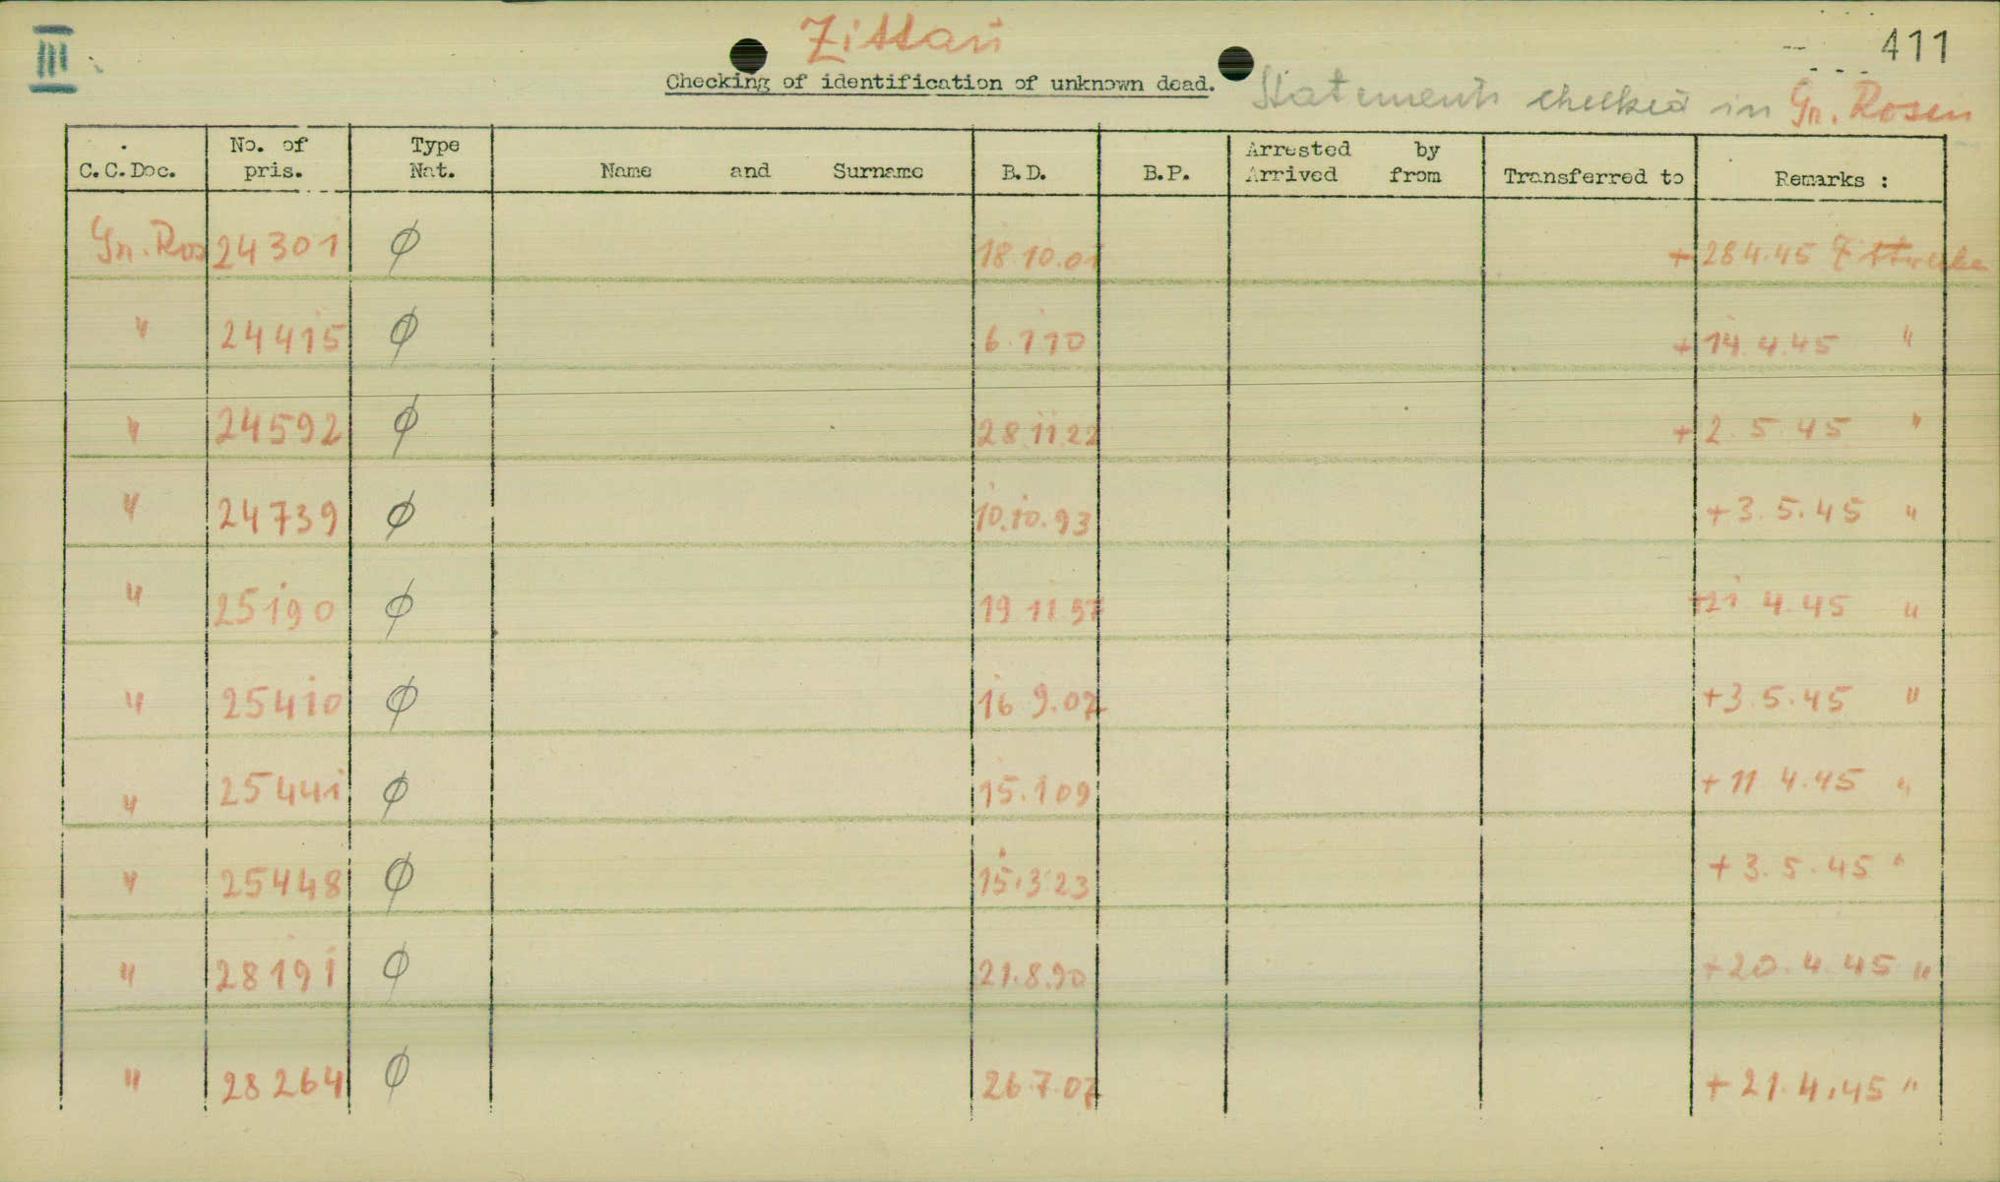 III
Zittau
411
Checking of identification of unknown dead.
Statements checked in Gr. Rosen
C.C.Doc. No. of pris. Type Nat. Name and Surname B.D. B.P. Arrested by Arrived from Transferred to Remarks :
Gr. Ros 24301 Ø 18.10.01 + 28.4.45
" 24415 Ø 6.1 10 + 14.4.45 "
" 24592 Ø 28 11 22 + 2.5.45 "
" 24739 Ø 10.10.93 + 3.5.45 "
" 25190 Ø 19 11 97 + 21 4.45 "
" 25410 Ø 16 9.07 + 3.5.45 "
" 25441 Ø 15.1 09 + 11 4.45 "
" 25448 Ø 15.3 23 + 3.5.45 "
" 28191 Ø 21.8.90 + 20.4.45 "
" 28264 Ø 26.7.07 + 21.4.45 "